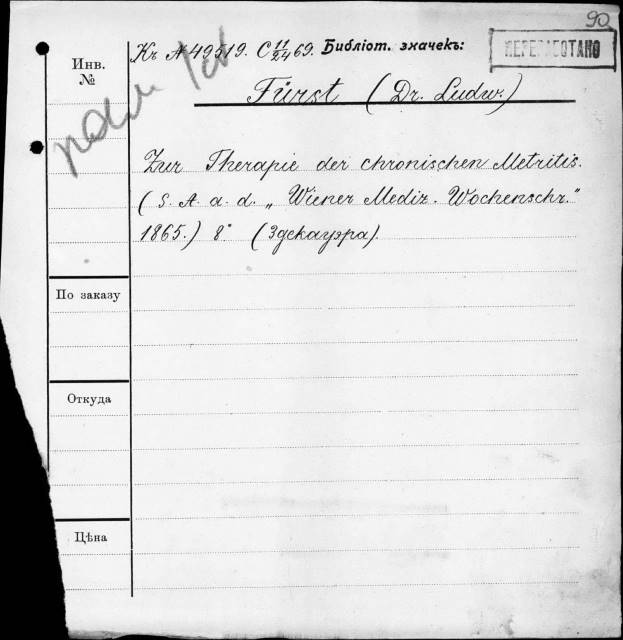 90
Къ № 49519. С 11/24 69. Библіот. значекъ:
ПЕРЕРАБОТАНО
Инв.
№
Fürst (Dr. Ludw.)
Zur Therapie der chronischen Metritis.
(S. A. a. d. „Wiener Mediz. Wochenschr."
1865.) 8° (3 экземпляра).
По заказу
Откуда
Цѣна